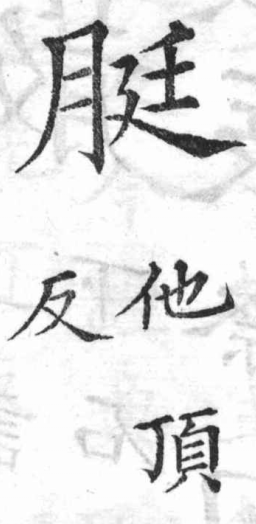 脡
他頂
反